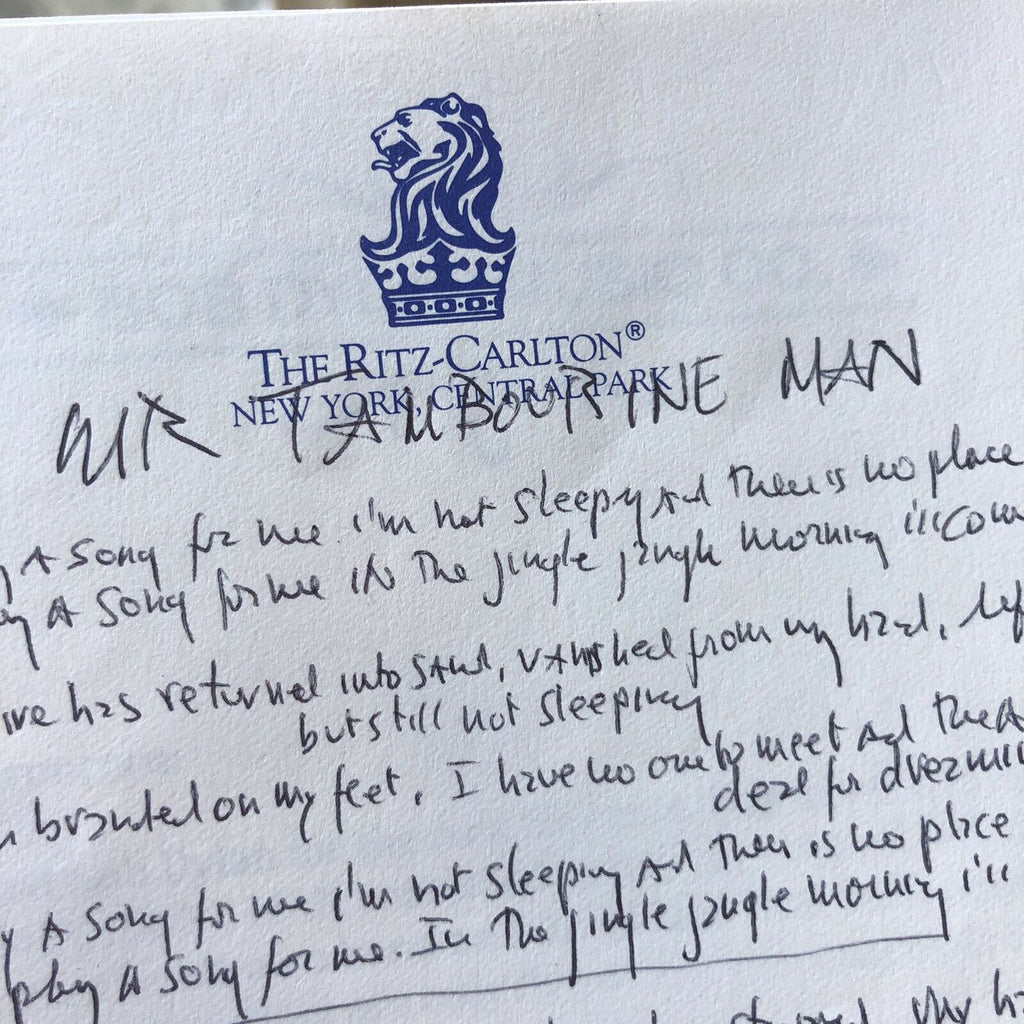 THE RITZ-CARLTON®
NEW YORK, CENTRAL PARK
MR TAMBOURINE MAN
A SONG for me. i'm not sleepy And there is no place
A SONG for me iN The jingle jangle morning i'll
has returned into SANd, VANished from my hand,
but still not sleeping
branded on my feet, I have no one to meet And the
dead for
A SONG for me i'm not sleeping And There is no place
play A SONG for me. In The jingle jangle morning i'll